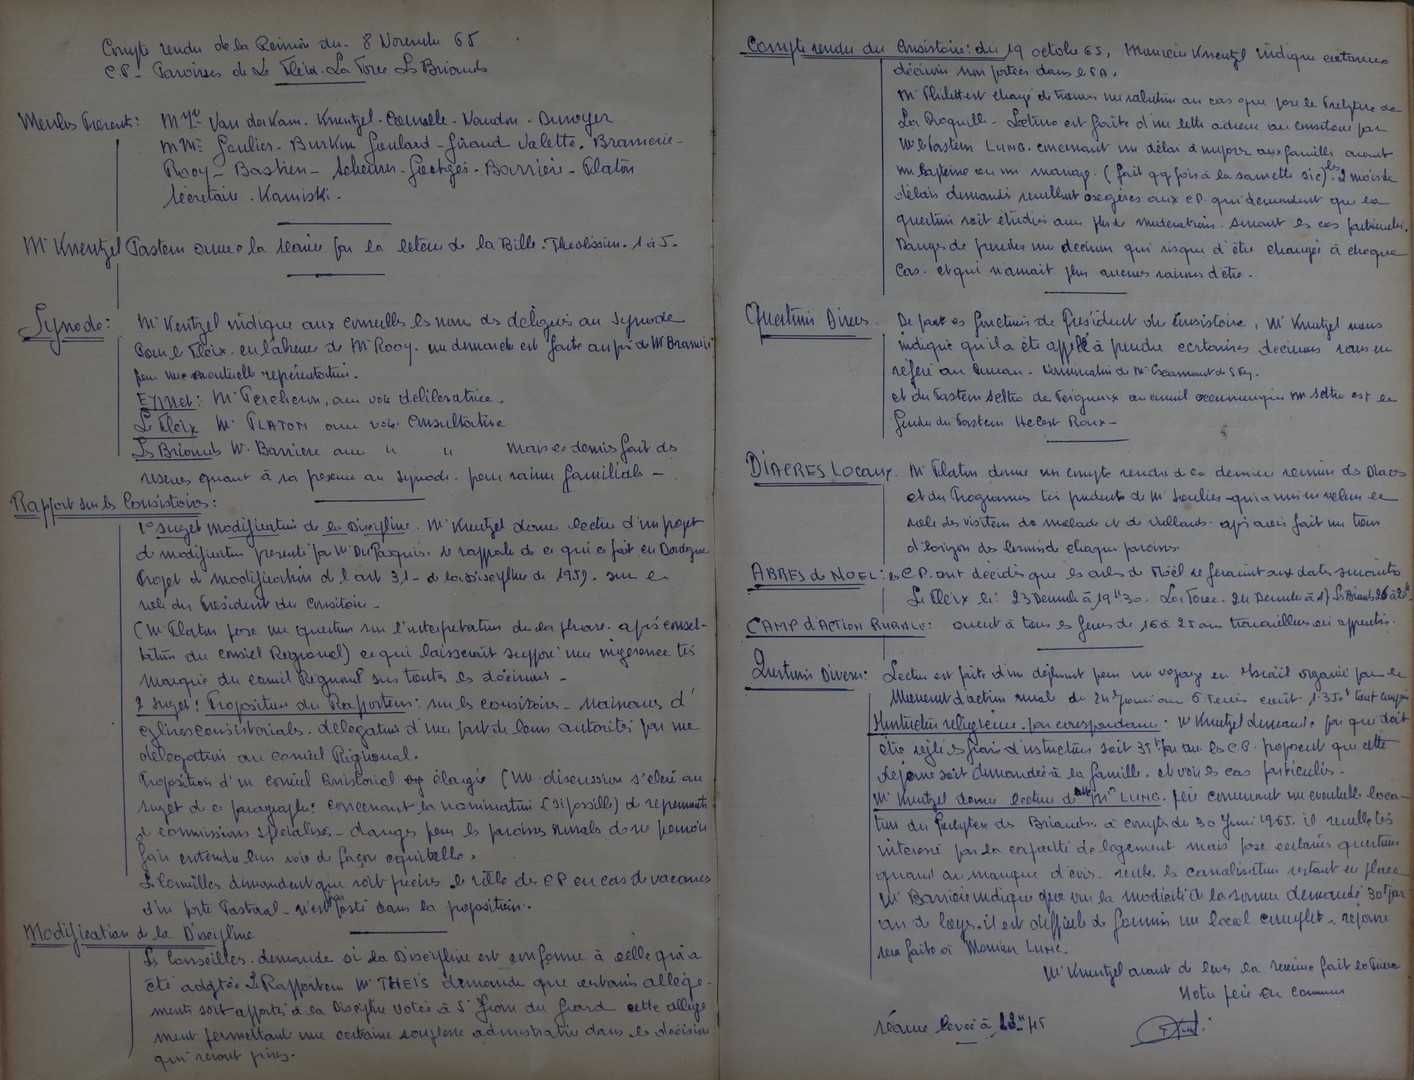 Compte rendu de la Réunion du. 8 Novembre 65
CP - Paroisses de Le Fleix. La Force Les Briands
Membres Présents: Mmes Van der Kam. Kneutzel. Naudon - Dunoyer
MMrs Soulier - Burkin Goulard - Giraud Valette. Brammerie -
Rooy - Bastien - Scheurer - Georges - Barrière - Platon
Secrétaire. Kamiski.
Mr Kneutzel Pasteur ouvre la séance par la lecture de la Bible. 1 à 5.
Synode: Mr Kentzel indique aux conseillers les noms des délégués au Synode
Pour le Fleix. en l'absence de Mr Rooy. une demande est faite auprès de Mr
pour une éventuelle représentation.
Eymet: Mr Percheron, avec voix délibératrice.
Le Fleix Mr PLATON avec voix Consultative
Les Briands Mr Barrière avec " " Mais ce dernier fait des
réserves quant à sa présence au Synode. pour raison familiale -
Rapport sur les Consistoires:
1° Sujet modification de la Discipline. Mr Kneutzel donne lecture d'un projet
de modification présenté par Mr Du Pasquier. le rappelle de ce qui ce fait en Dordogne
Projet de modification de l'art 31 - de la Discipline de 1959. sur le
role du Président du Consitoire -
(Mr Platon pose une question sur l'interprétation de la phrase. après consul-
tation du conseil Régional) ce qui laisserait supposé une ingérence très
marquée du conseil Régional sur toutes les décisions -
2 Sujet: Proposition du Rapporteur: sur les consitoires -
églises consistoriales. délégation d'une part de leurs autorités par une
délégation au conseil Régional.
Proposition d'un conseil Consistorial élargie (Une discussion s'élevé au
sujet de ce paragraphe: concernant la nomination (si possible) de représentants
de commissions spécialisés - danger pour les paroisses rurales de ne pouvoir
faire entendre leur voie de façon équitable.
Les Conseillers demandent que soit précisé le rôle des CP en cas de vacances
d'un poste Pastoral - n'est pas porté dans la proposition.
Modification de la Discipline
Les Conseillers. demande si la Discipline est conforme à celle qui a
été adoptée Le Rapporteur Mr THEIS demande que certains allège-
ments soit apportés à la Discipline votée à St Jean du Gard cette allège
ment permettant une certaine souplesse administrative dans les décisions
qui seront prises.
Compte rendu du Consistoire: du 19 octobre 65. Monsieur Kneutzel indique certaines
décisions non portées dans le PA.
Mr est chargé de trouver une solution au cas que pose le Presbytère de
La Roquille - Lecture est faite d'une lettre adressée au consitoire par
Mr le Pasteur LUNG. concernant un délai à imposer aux familles avant
un baptême ou un mariage. (fait qq fois à la sauvette sic) les 2 mois de
délais demandés semblent exagérés aux CP. qui demandent que la
question soit étudiée avec plus de modération. suivant les cas particuliers.
Danger de prendre une décision qui risque d'être changée à chaque
cas. et qui n'aurait plus aucunes raisons d'être -
Questions Divers De part ses fonctions de Président du Consistoire, Mr Kneutzel nous
indique qu'il a été appelé à prendre certaines décisions sans en
référé au - Nomination de Mr
et du Pasteur Seltro de au conseil oecuménique Mr Seltro est le
gendre du Pasteur Hebert Roux -
DIACRES LOCAUX. Mr Platon donne un compte rendu de la dernière réunion des Diacres
et du Programme très de Mr Soulier - qui a mis en valeur le
role des visiteurs de malades et de vieillards. après avoir fait un tour
d'horizon des besoins de chaque paroisse.
ARBRES de NOEL: les CP. ont décidés que les arbres de Noël se feraient aux dates suivantes
Le Fleix le: 23 Décembre à 19h30. La Force. 24 Décembre à 17 Les Briands 26 à 20h
CAMP d'ACTION RURALE: ouvert à tous les jeunes de 16 à 25 ans travailleurs ou apprentis.
Questions Divers: Lecture est faite d'un dépliant pour un voyage en Israël organisé par le
Mouvement d'action rural du 24 Janvier au 6 Février coût. 1350f tout compris
Instruction religieuse par correspondance. Mr Kneutzel demande par qui doit
être réglé les frais d'instruction soit 35f par an les C.P. proposent que cette
réponse soit demandée à la famille. et voir les cas particuliers.
Mr Kneutzel donne lecture de Mr LUNG. concernant une éventuelle loca-
tion du Presbytère des Briands. à compter du 30 Juin 1965. il semble très
intéressé par la capacité de logement mais pose certaines questions
quand au manque d'évier. seules les canalisation restant en place
Mr Barrière indique que vu la modicité de la somme demandé 30f par
an de loyer. il est difficile de fournir un local complet - réponse
sera faite à Monsieur LUNG.
Mr Kneutzel avant de lever la séance fait la Prière
Notre père en commun
séance levée à 23h 15